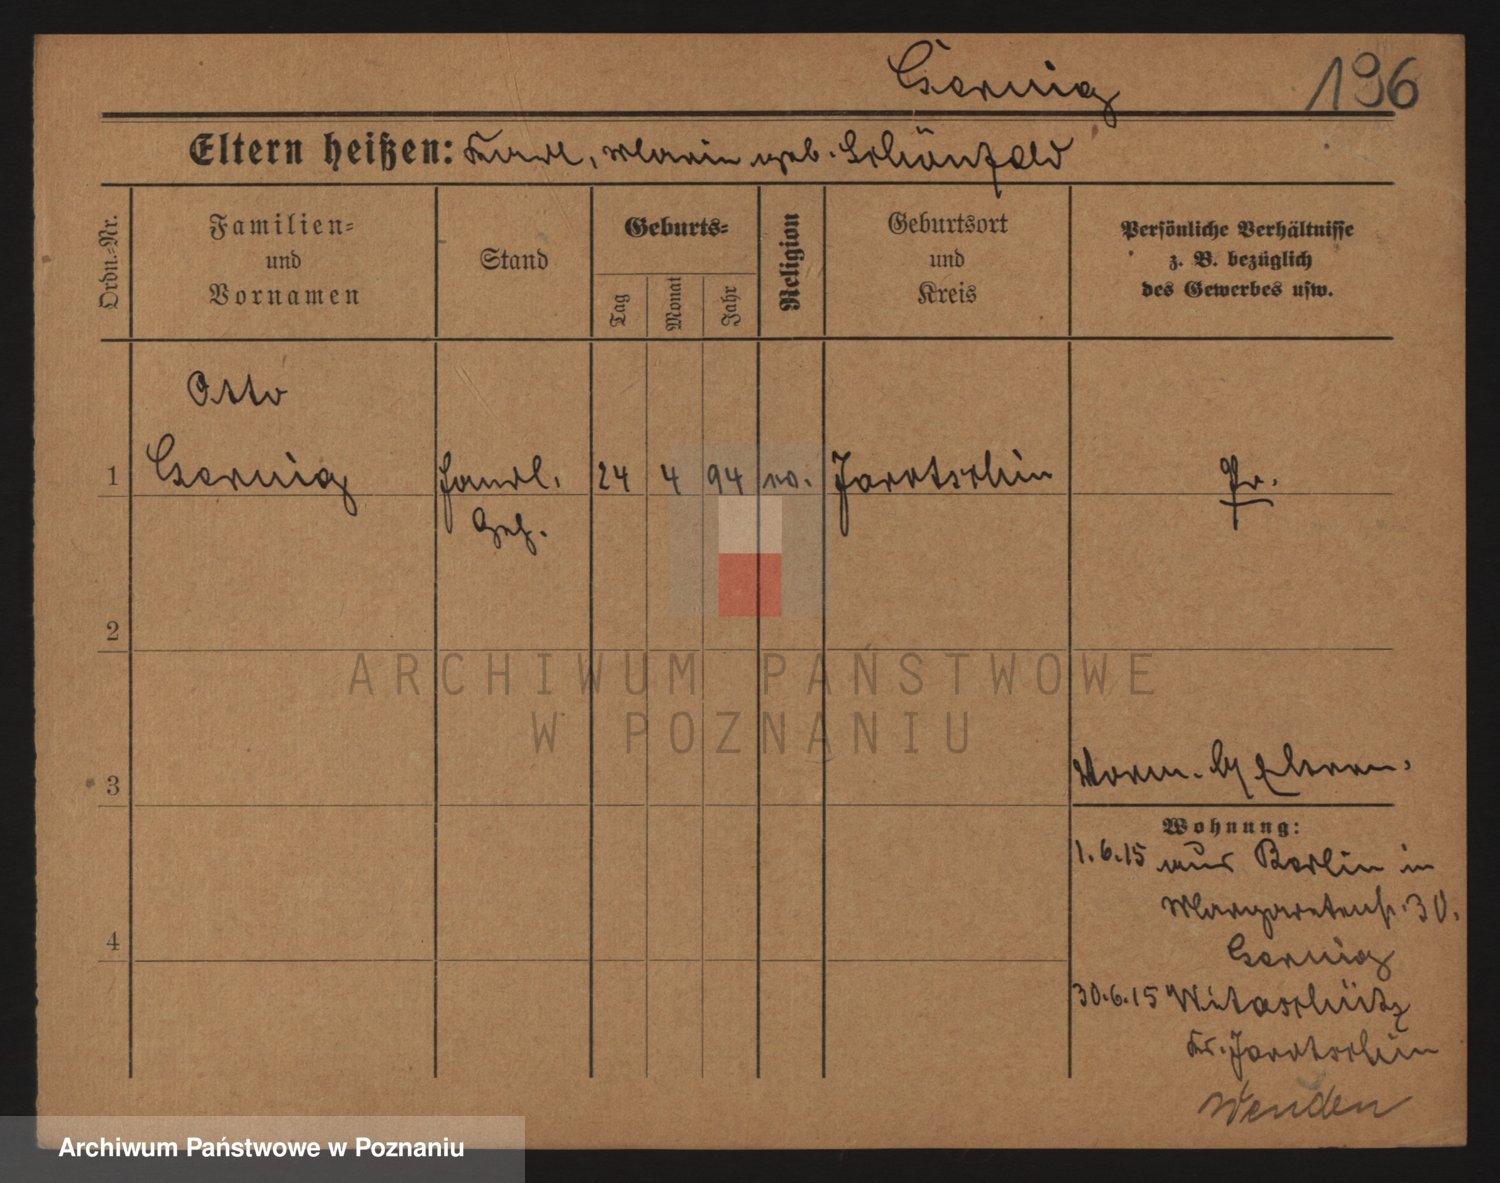 Czernig 196
Eltern heißen: Karl, Marie geb. Schönfeld
Ordn.-Nr.
Familien-
und
Vornamen
Stand
Geburts-
Tag
Monat
Jahr
Religion
Geburtsort
und
Kreis
Persönliche Verhältnisse
z. B. bezüglich
des Gewerbes usw.
Otto
1 Czernig Handl. 24 4 94 ev. Jarotschin Pr.
Geh.
2
ARCHIWUM PAŃSTWOWE
W POZNANIU
3
Eltern.
Wohnung:
1.6.15 aus Berlin in
Margaretenstr. 30.
4
Czernig
30.6.15 Witaschütz
Kr. Jarotschin
Wenden
Archiwum Państwowe w Poznaniu